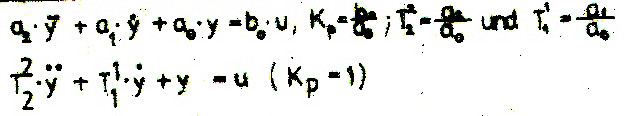 a₂·ÿ + a₁·ẏ + a₀·y = b₀·u, Kₚ = b₀/a₀; T₂² = a₂/a₀ und T₁¹ = a₁/a₀
T₂²·ÿ + T₁¹·ẏ + y = u (Kₚ = 1)